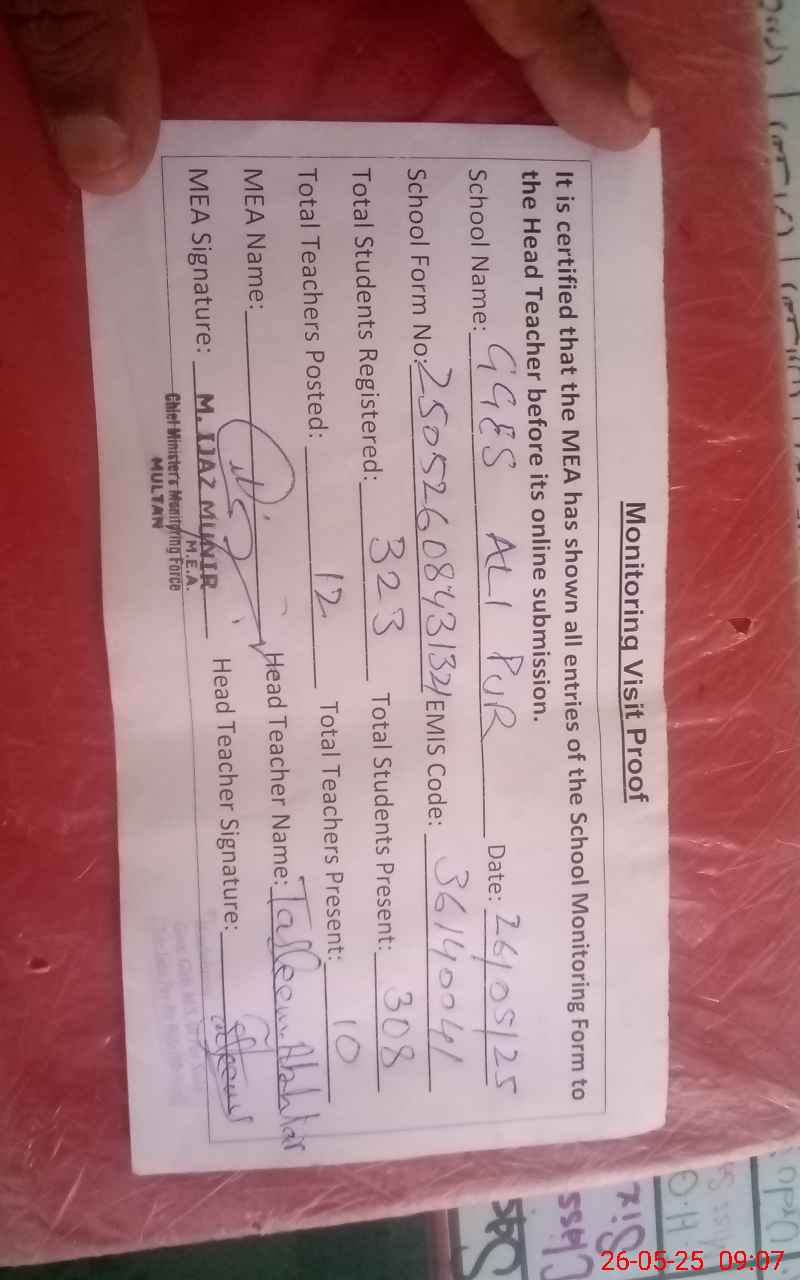 Monitoring Visit Proof
It is certified that the MEA has shown all entries of the School Monitoring Form to
the Head Teacher before its online submission.
School Name: GGES ALI PUR Date: 26/05/25
School Form No: EMIS Code: 36140041
Total Students Registered: 323 Total Students Present: 308
Total Teachers Posted: 12 Total Teachers Present: 10
MEA Name: Head Teacher Name: Tasleem Akhtar
MEA Signature: M. IJAZ MUNIR Head Teacher Signature:
M.E.A.
Chief Minister's Monitoring Force
MULTAN
Six
Class
26-05-25 09:07